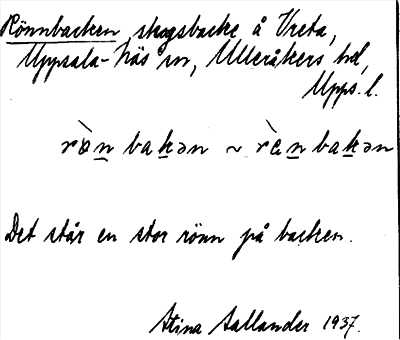 Rönnbacken, skogsbacke å Vreta,
Uppsala-Näs sn, Ulleråkers hd,
Upps. l.
rö̀n bakən ~ rὲn bakən
Det står en stor rönn på backen.
Stina Sallander 1937.